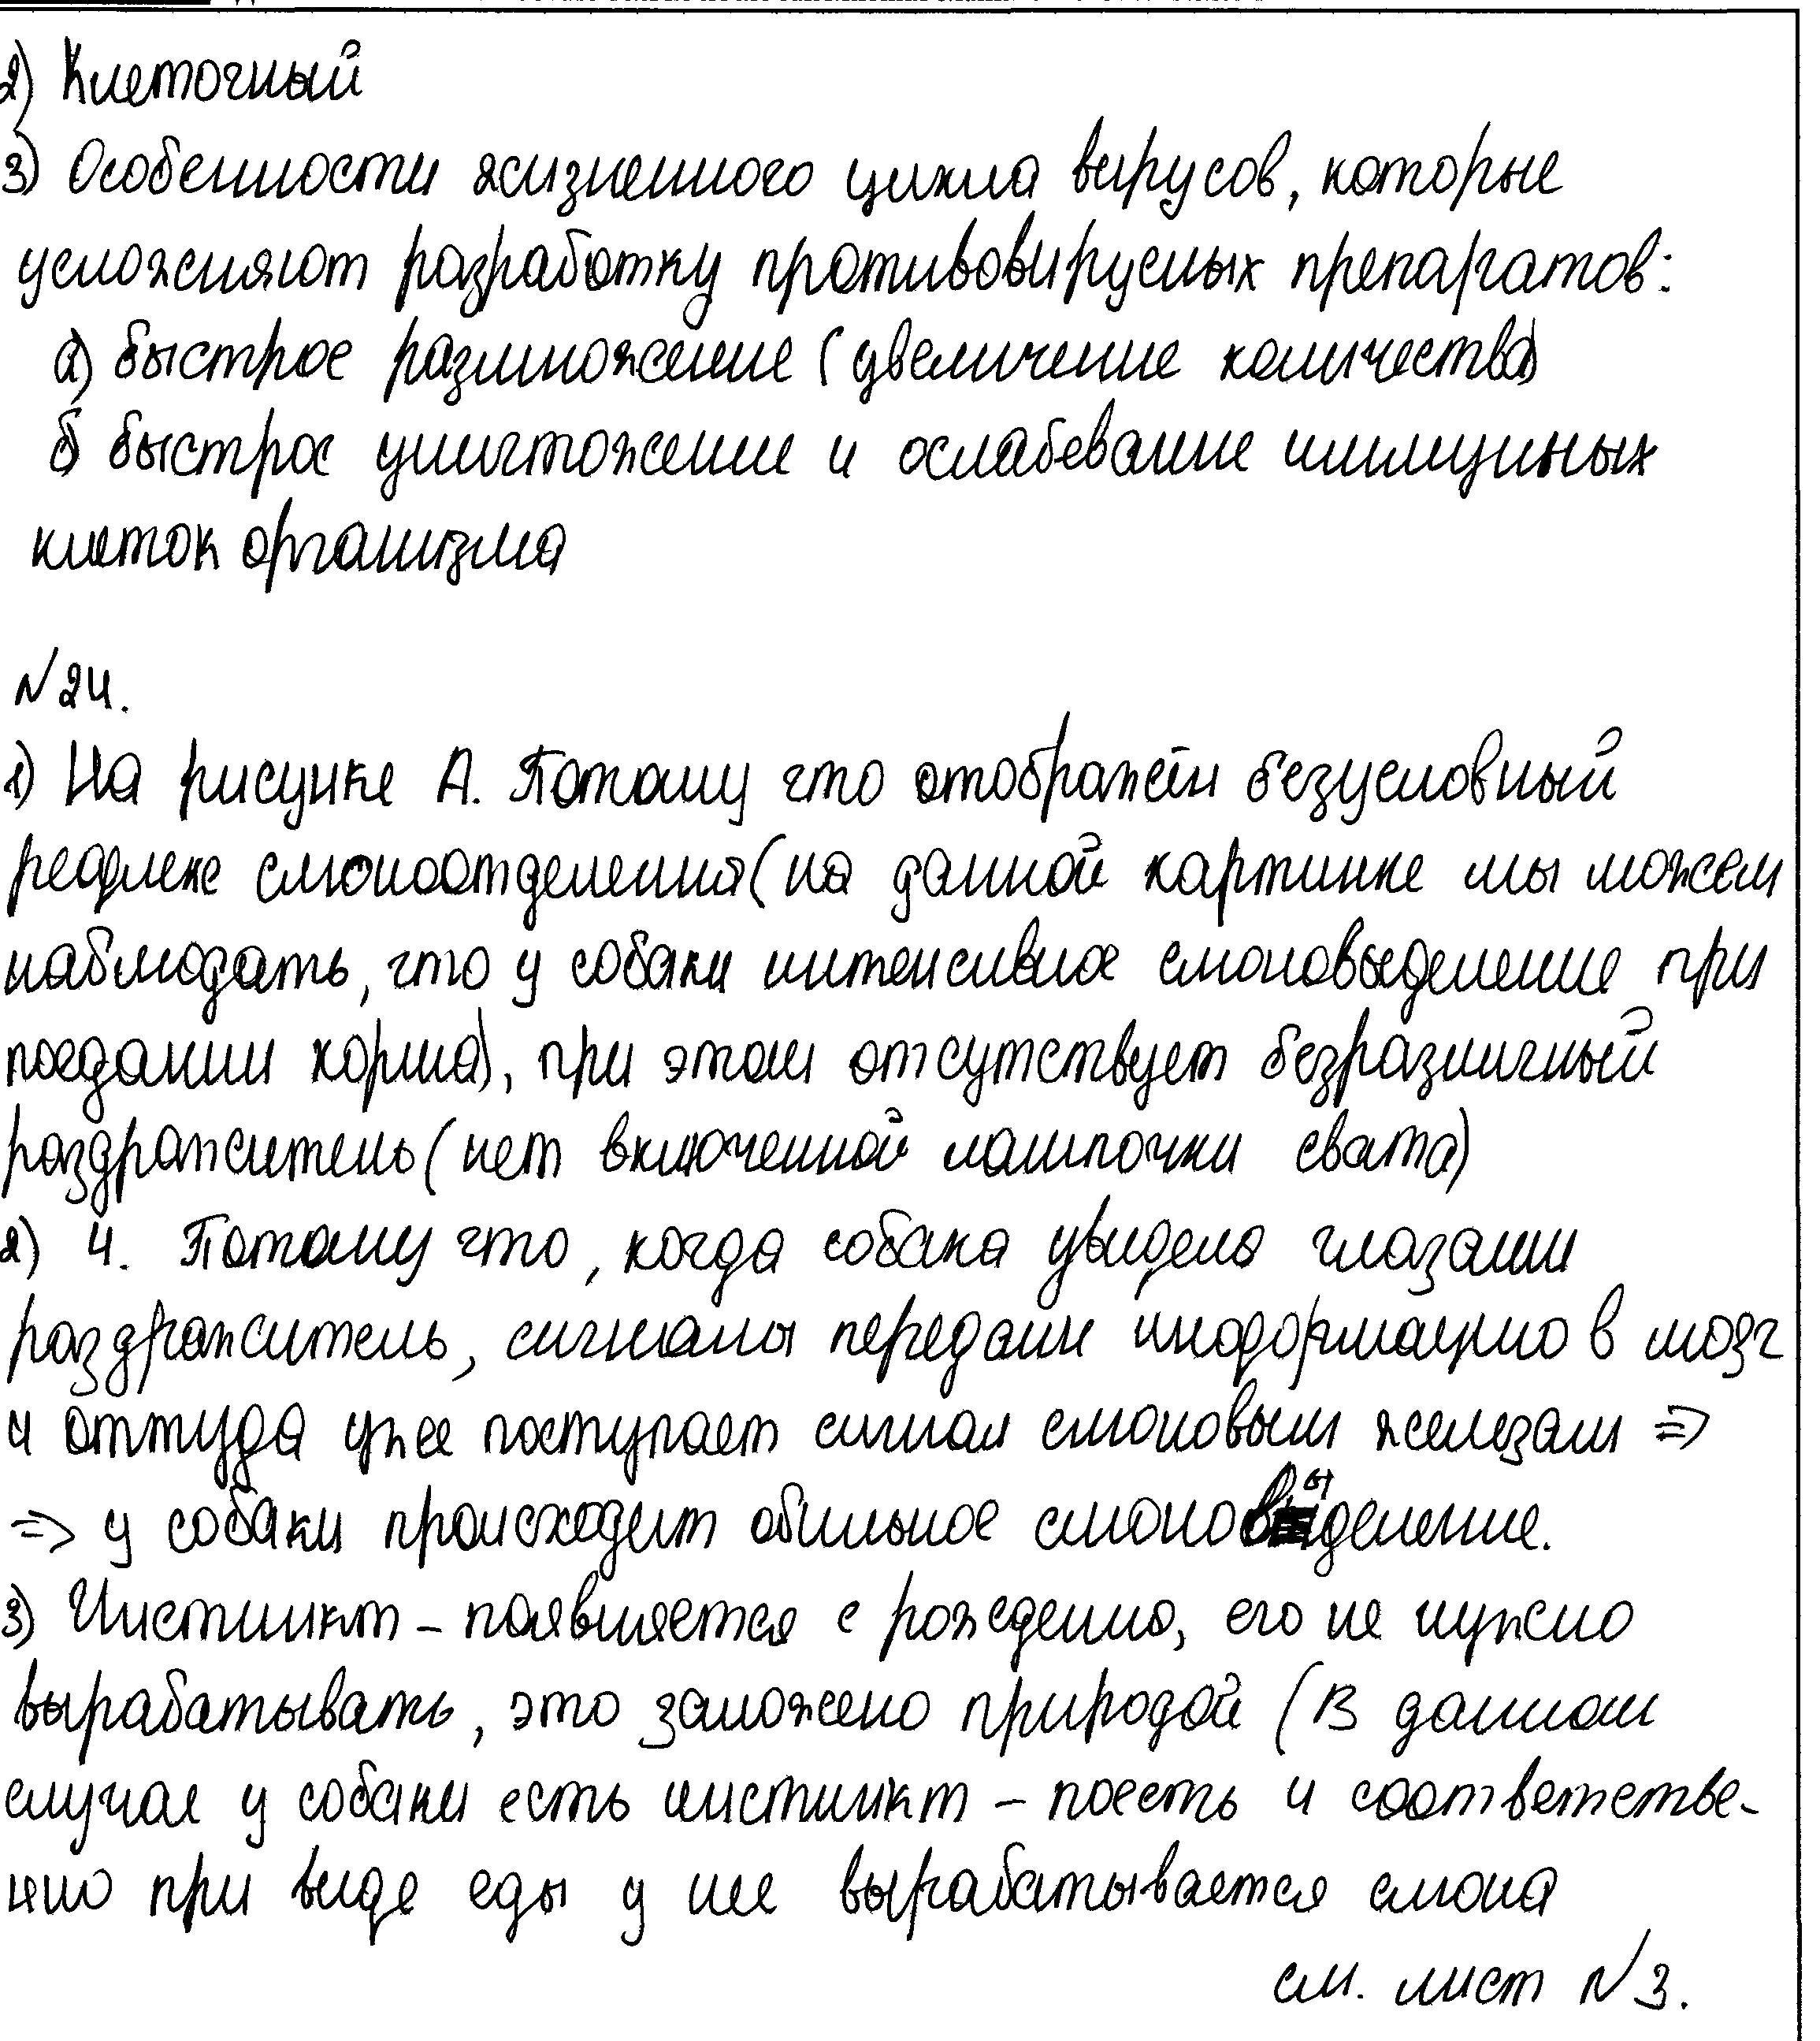 2) Клеточный
3) Особенности жизненного цикла вирусов, которые
усложняют разработку противовирусных препаратов:
а) быстрое размножение (увеличение количества)
б) быстрое уничтожение и ослабевание иммунных
клеток организма
№24.
1) На рисунке А. Потому что отображён безусловный
рефлекс слюноотделения (на данной картинке мы можем
наблюдать, что у собаки интенсивное слюновыделение при
поедании корма), при этом отсутствует безразличный
раздражитель (нет включенной лампочки света)
2) 4. Потому что, когда собака увидела глазами
раздражитель, сигналы передали информацию в мозг
и оттуда уже поступает сигнал слюновым железам =>
=> у собаки происходит обильное слюновыделение.
3) Инстинкт - появляется с рождению, его не нужно
вырабатывать, это заложено природой (В данном
случае у собаки есть инстинкт - поесть и соответстве-
нно при виде еды у нее вырабатывается слюна
см. лист №3.